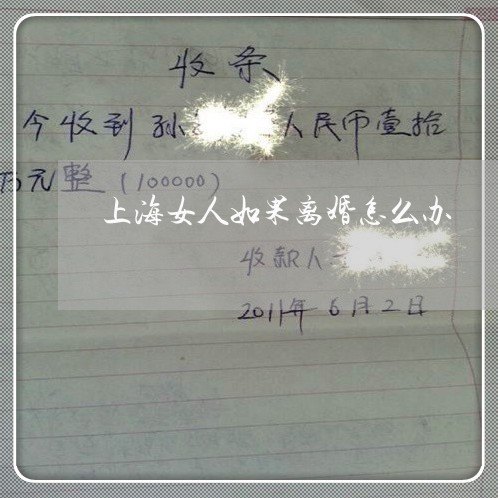 收条
今收到孙 人民币壹拾
万元整（100000）
上海女人如果离婚怎么办
收款人
2011年6月2日